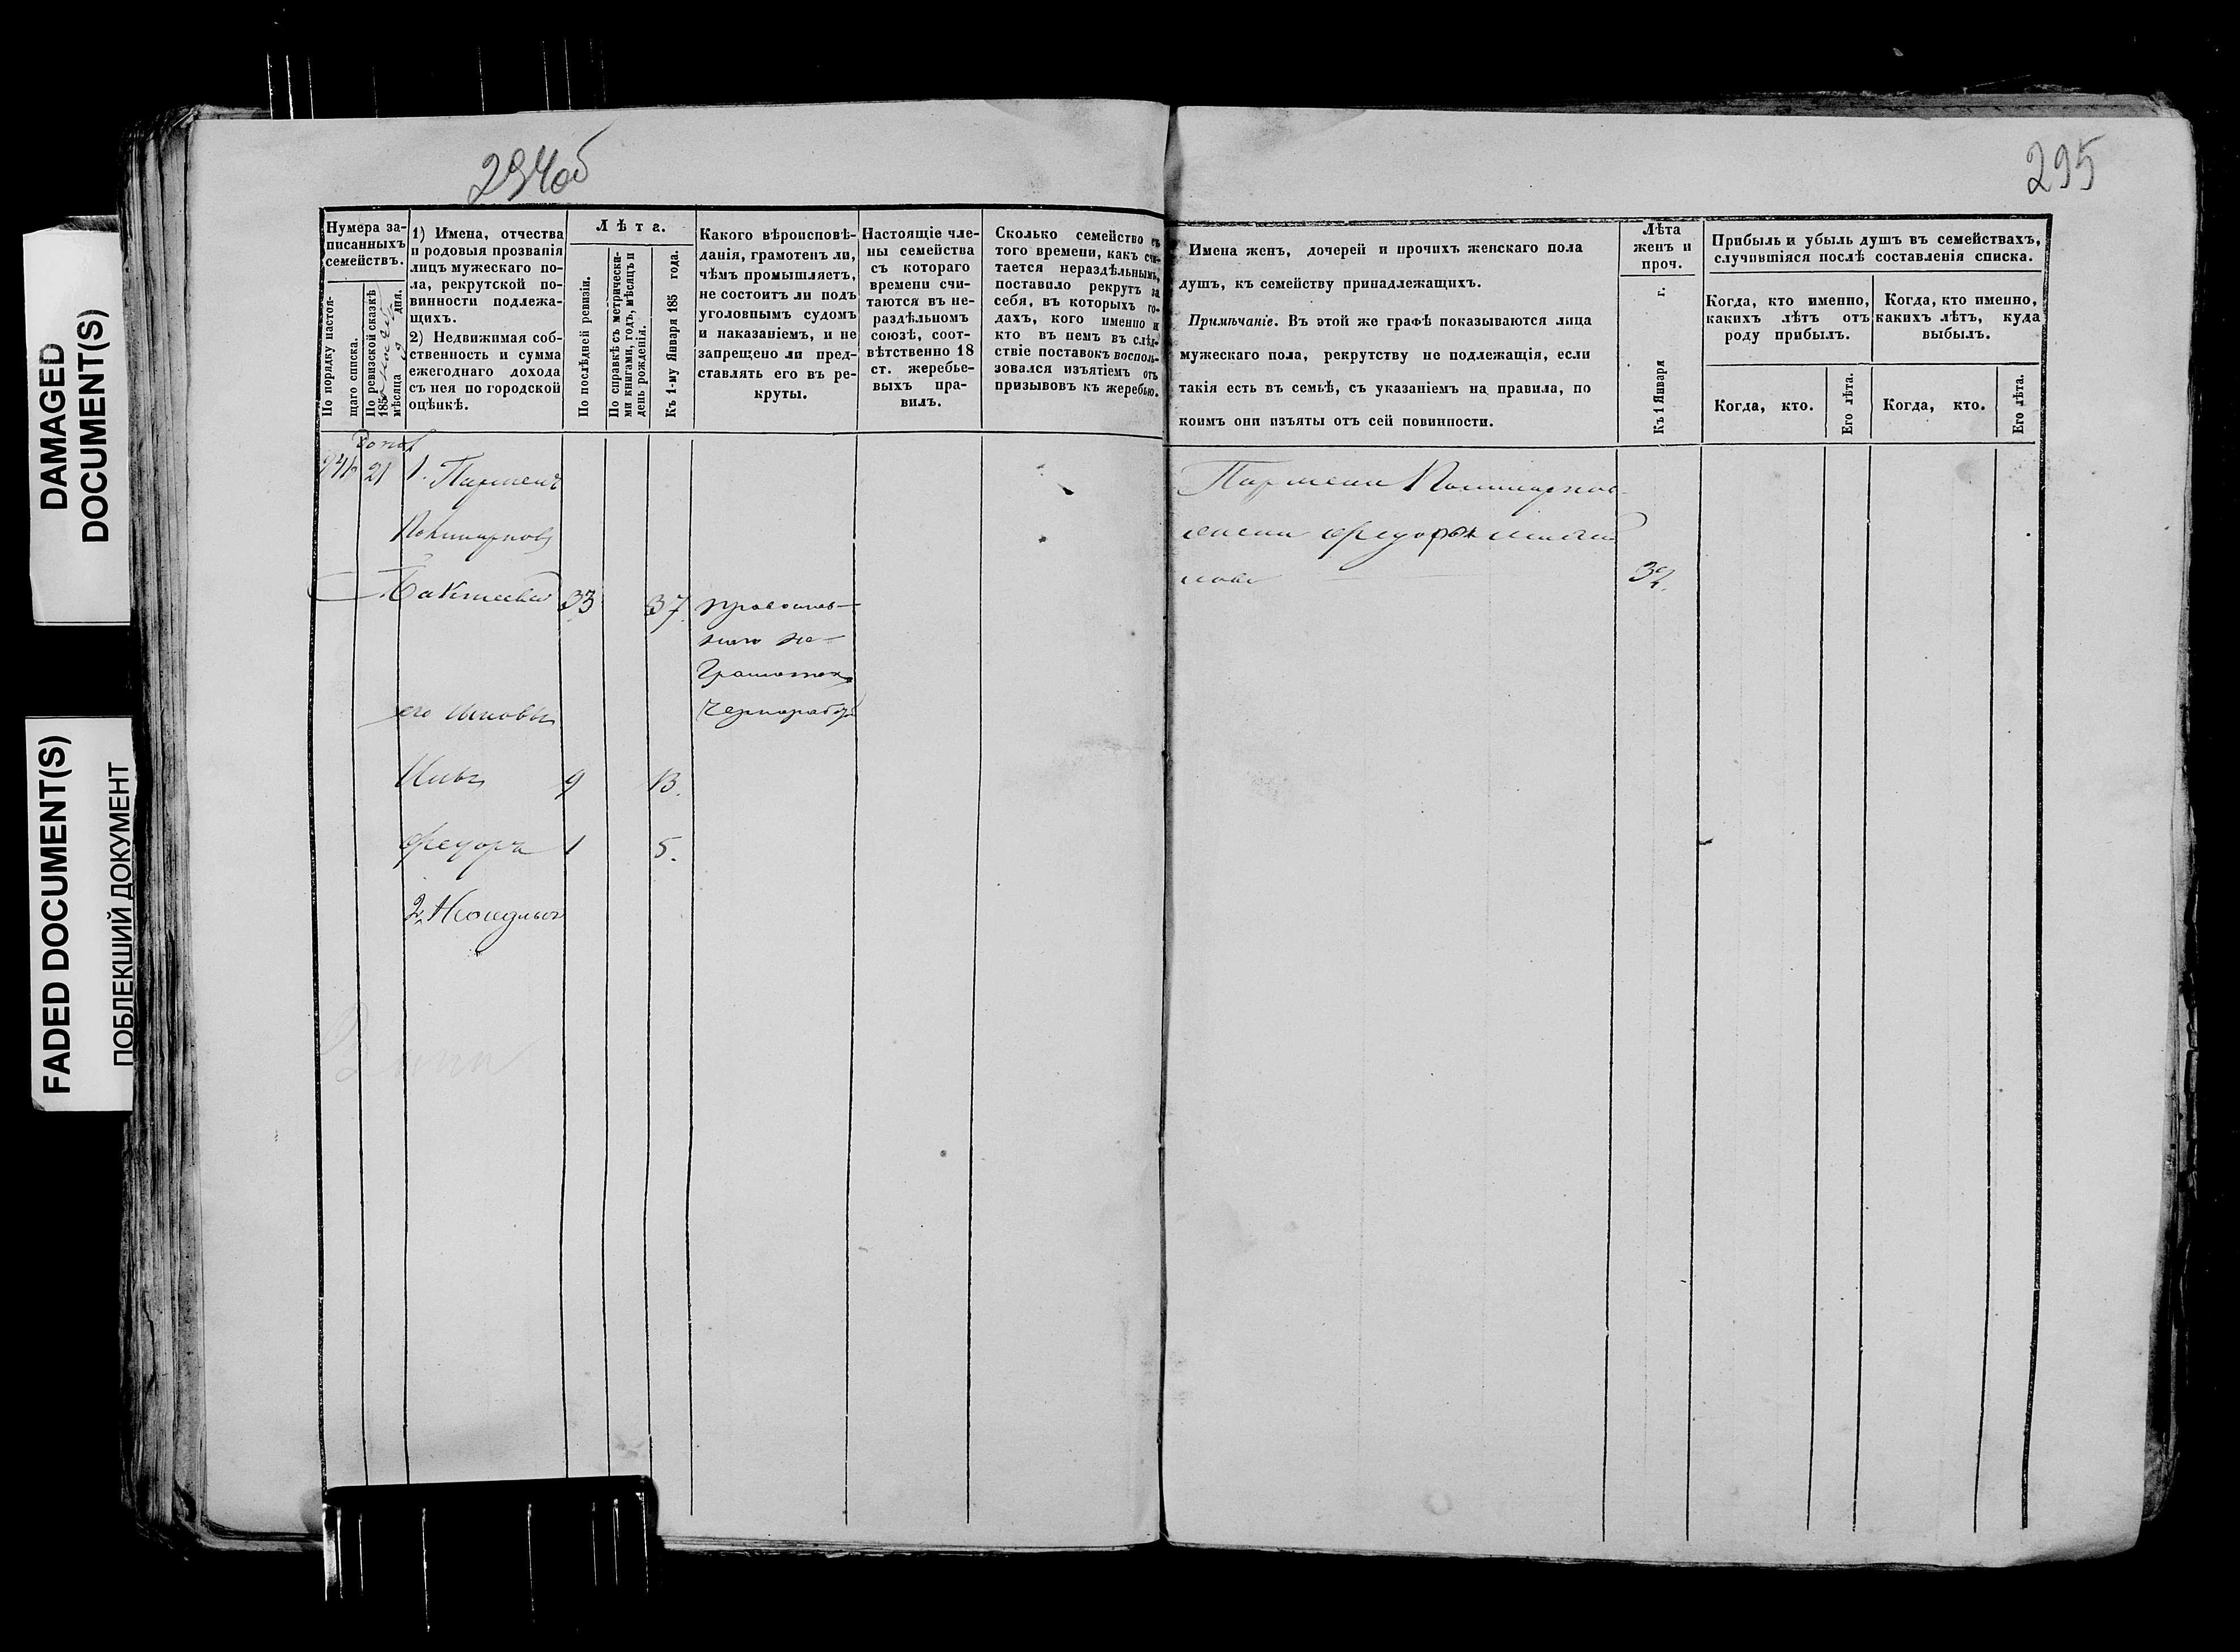 DAMAGED
DOCUMENT(S)
FADED DOCUMENT(S)
ПОБЛЕКШИЙ ДОКУМЕНТ
294об
295
Нумера за-
писанныхъ
семействъ.
По порядку настоя-
щаго списка.
По ревизской сказкѣ
185
мѣсяца 9 дня.
1) Имена, отчества
и родовыя прозванія
лицъ мужескаго по-
ла, рекрутской по-
винности подлежа-
щихъ.
2) Недвижимая соб-
ственность и сумма
ежегоднаго дохода
съ нея по городской
оцѣнкѣ.
Лѣта.
По послѣдней ревизіи.
По справкѣ съ метрически-
ми книгами, годъ, мѣсяцъ и
день рожденія.
Къ 1-му Января 185 года.
Какого вѣроисповѣ-
данія, грамотенъ ли,
чѣмъ промышляетъ,
не состоитъ ли подъ
уголовнымъ судомъ
и наказаніемъ, и не
запрещено ли пред-
ставлять его въ ре-
круты.
Настоящіе чле-
ны семейства
съ котораго
времени счи-
таются въ не-
раздѣльномъ
союзѣ, соот-
вѣтственно 18
ст. жеребье-
выхъ пра-
вилъ.
Сколько семейство съ
того времени, какъ счи-
тается нераздѣльнымъ,
поставило рекрутъ за
себя, въ которыхъ го-
дахъ, кого именно и
кто въ немъ въ слѣд-
ствіе поставокъ восполь-
зовался изъятіемъ отъ
призывовъ къ жеребью.
Имена женъ, дочерей и прочихъ женскаго пола
душъ, къ семейству принадлежащихъ.
Примѣчаніе. Въ этой же графѣ показываются лица
мужескаго пола, рекрутству не подлежащія, если
такія есть въ семьѣ, съ указаніемъ на правила, по
коимъ они изъяты отъ сей повинности.
Лѣта
женъ и
проч.
Къ 1 Января г.
Прибыль и убыль душъ въ семействахъ,
случившіяся послѣ составленія списка.
Когда, кто именно,
какихъ лѣтъ отъ
роду прибылъ.
Когда, кто именно,
какихъ лѣтъ, куда
выбылъ.
Когда, кто.
Его лѣта.
Когда, кто.
Его лѣта.
21 1. Парменъ
Поликарповъ
33 37. православ-
наго не-
грамотенъ
его сыновья чернорабоч
9 13.
Федоръ 1 5.
2.
Пармена Поликарпов
жена Федора
32.